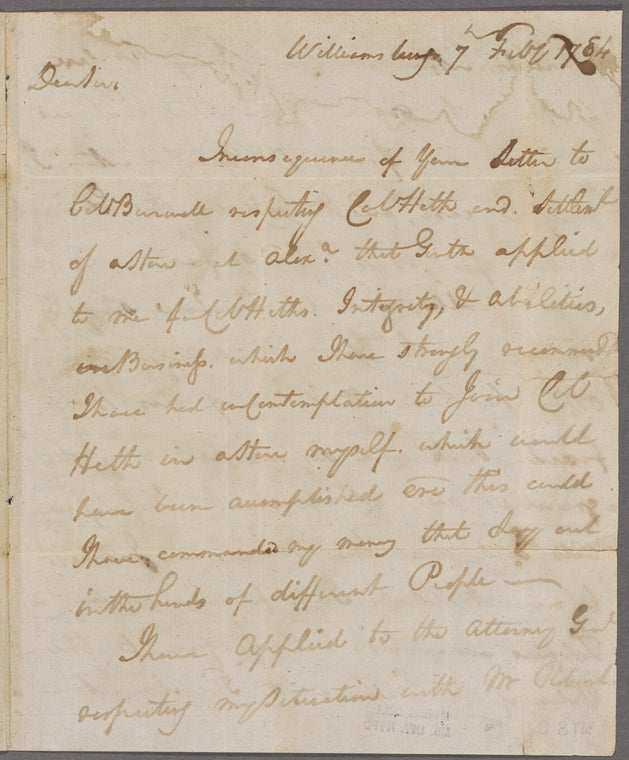 Williamsburg 7th Feby 1784
Dear Sir,
In consequence of Your Letter to
Col Burwell respecting Col Heth and Settlemt
of a Store at Alexa. that Gentn applied
to me for Col Heths. Integrity, & abilities,
in Business. which I have strongly recommend
I have had in Contemplation to Join Col
Heth in a Store myself. which would
have been accomplished ere this could
I have commanded my money that Lay out
in the hands of different People
I have applied to the Attorney Genl
respecting my Situation with Mr Robert